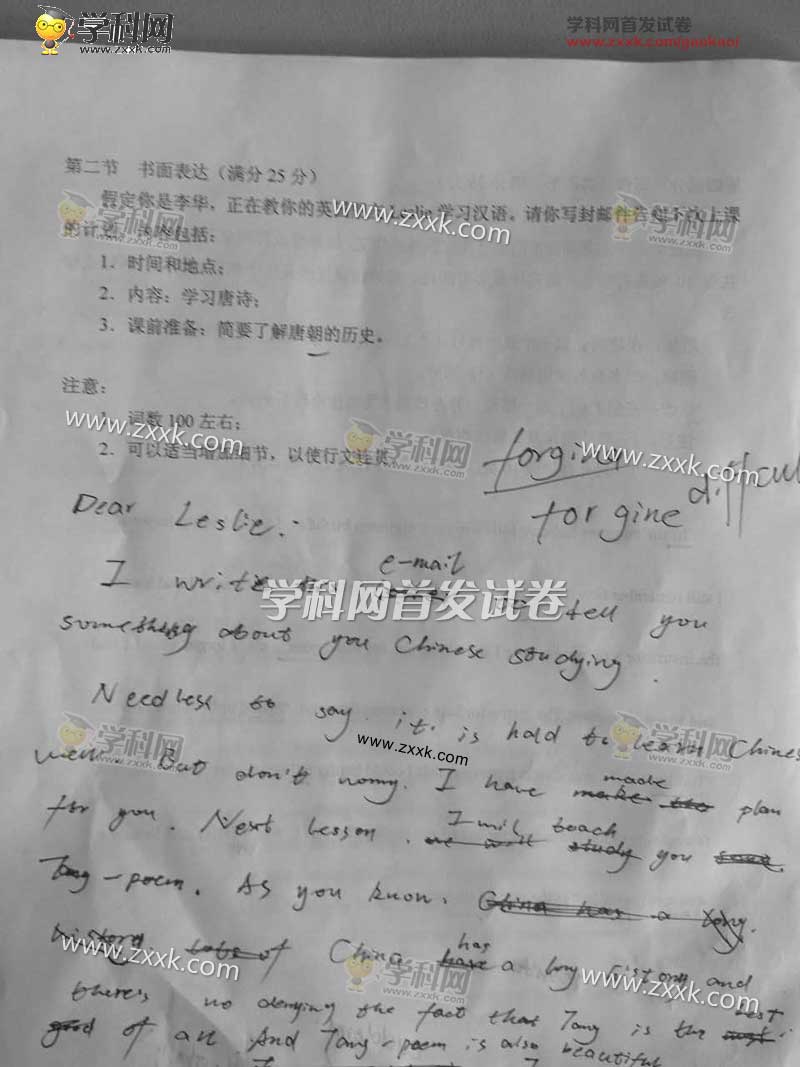 学科网
www.zxxk.com
学科网首发试卷
www.zxxk.com/gaokao/
第二节 书面表达（满分25分）
假定你是李华，正在教你的英 Leslie 学习汉语。请你写封邮件告 下次上课
的计划 包括：
1．时间和地点；
2．内容：学习唐诗；
3．课前准备：简要了解唐朝的历史。
注意：
1．词数100左右；
2．可以适当增加细节，以使行文连贯
www.zxxk.com
学科网
www.zxxk.com
forgine difficul
Dear Leslie.:
e-mail
I write to tell you
学科网首发试卷
something about you Chinese studying.
Needless to say. it is hald to learn Chinese
www.zxxk.com
well. But don't worry. I have made plan
for you. Next lesson. I will teach you
Tang-poem. As you know.
China has a long and
there's no denying the fact that Tang is the best
of all. And Tang-poem is also beautiful